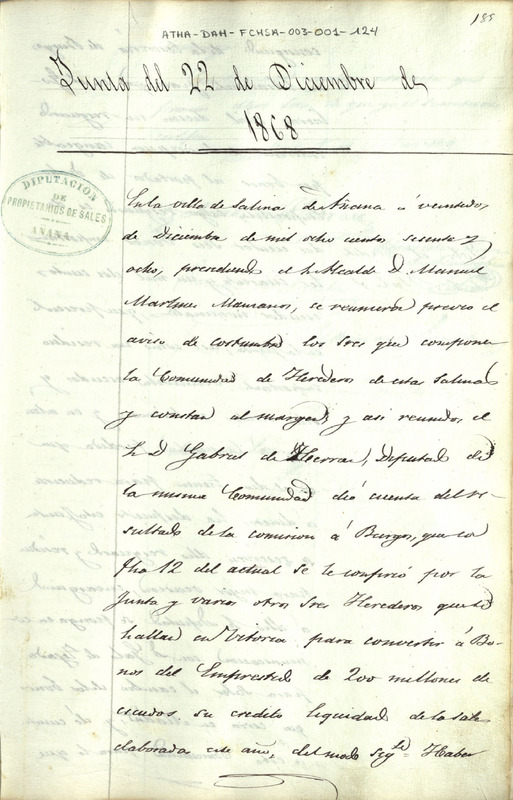 ATHA-DAH-FCHSA-003-001-124
185
Junta del 22 de Diciembre de
1868
DIPUTACION
DE
PROPIETARIOS DE SALES
AÑANA
En la villa de Salina de Añana á veintidos
de Diciembre de mil ocho cientos sesenta y
ocho, presidiendo el Sr Alcalde D. Manuel
Martinez Manzanos, se reunieron previo el
aviso de costumbre los Sres que componen
la Comunidad de Herederos de estas Salinas
y constan al margen, y asi reunidos, el
Sr D Gabriel de Herran, Diputado de
la misma Comunidad dió cuenta del re-
sultado de la comision á Burgos, que con
fha 12 del actual se le confirió por la
Junta y varios otros Sres Herederos que se
hallan en Vitoria para convertir á Bo-
nos del Emprestito de 200 millones de
escudos su credito liquidado de la sal
elaborada este año, del modo sigte Haber